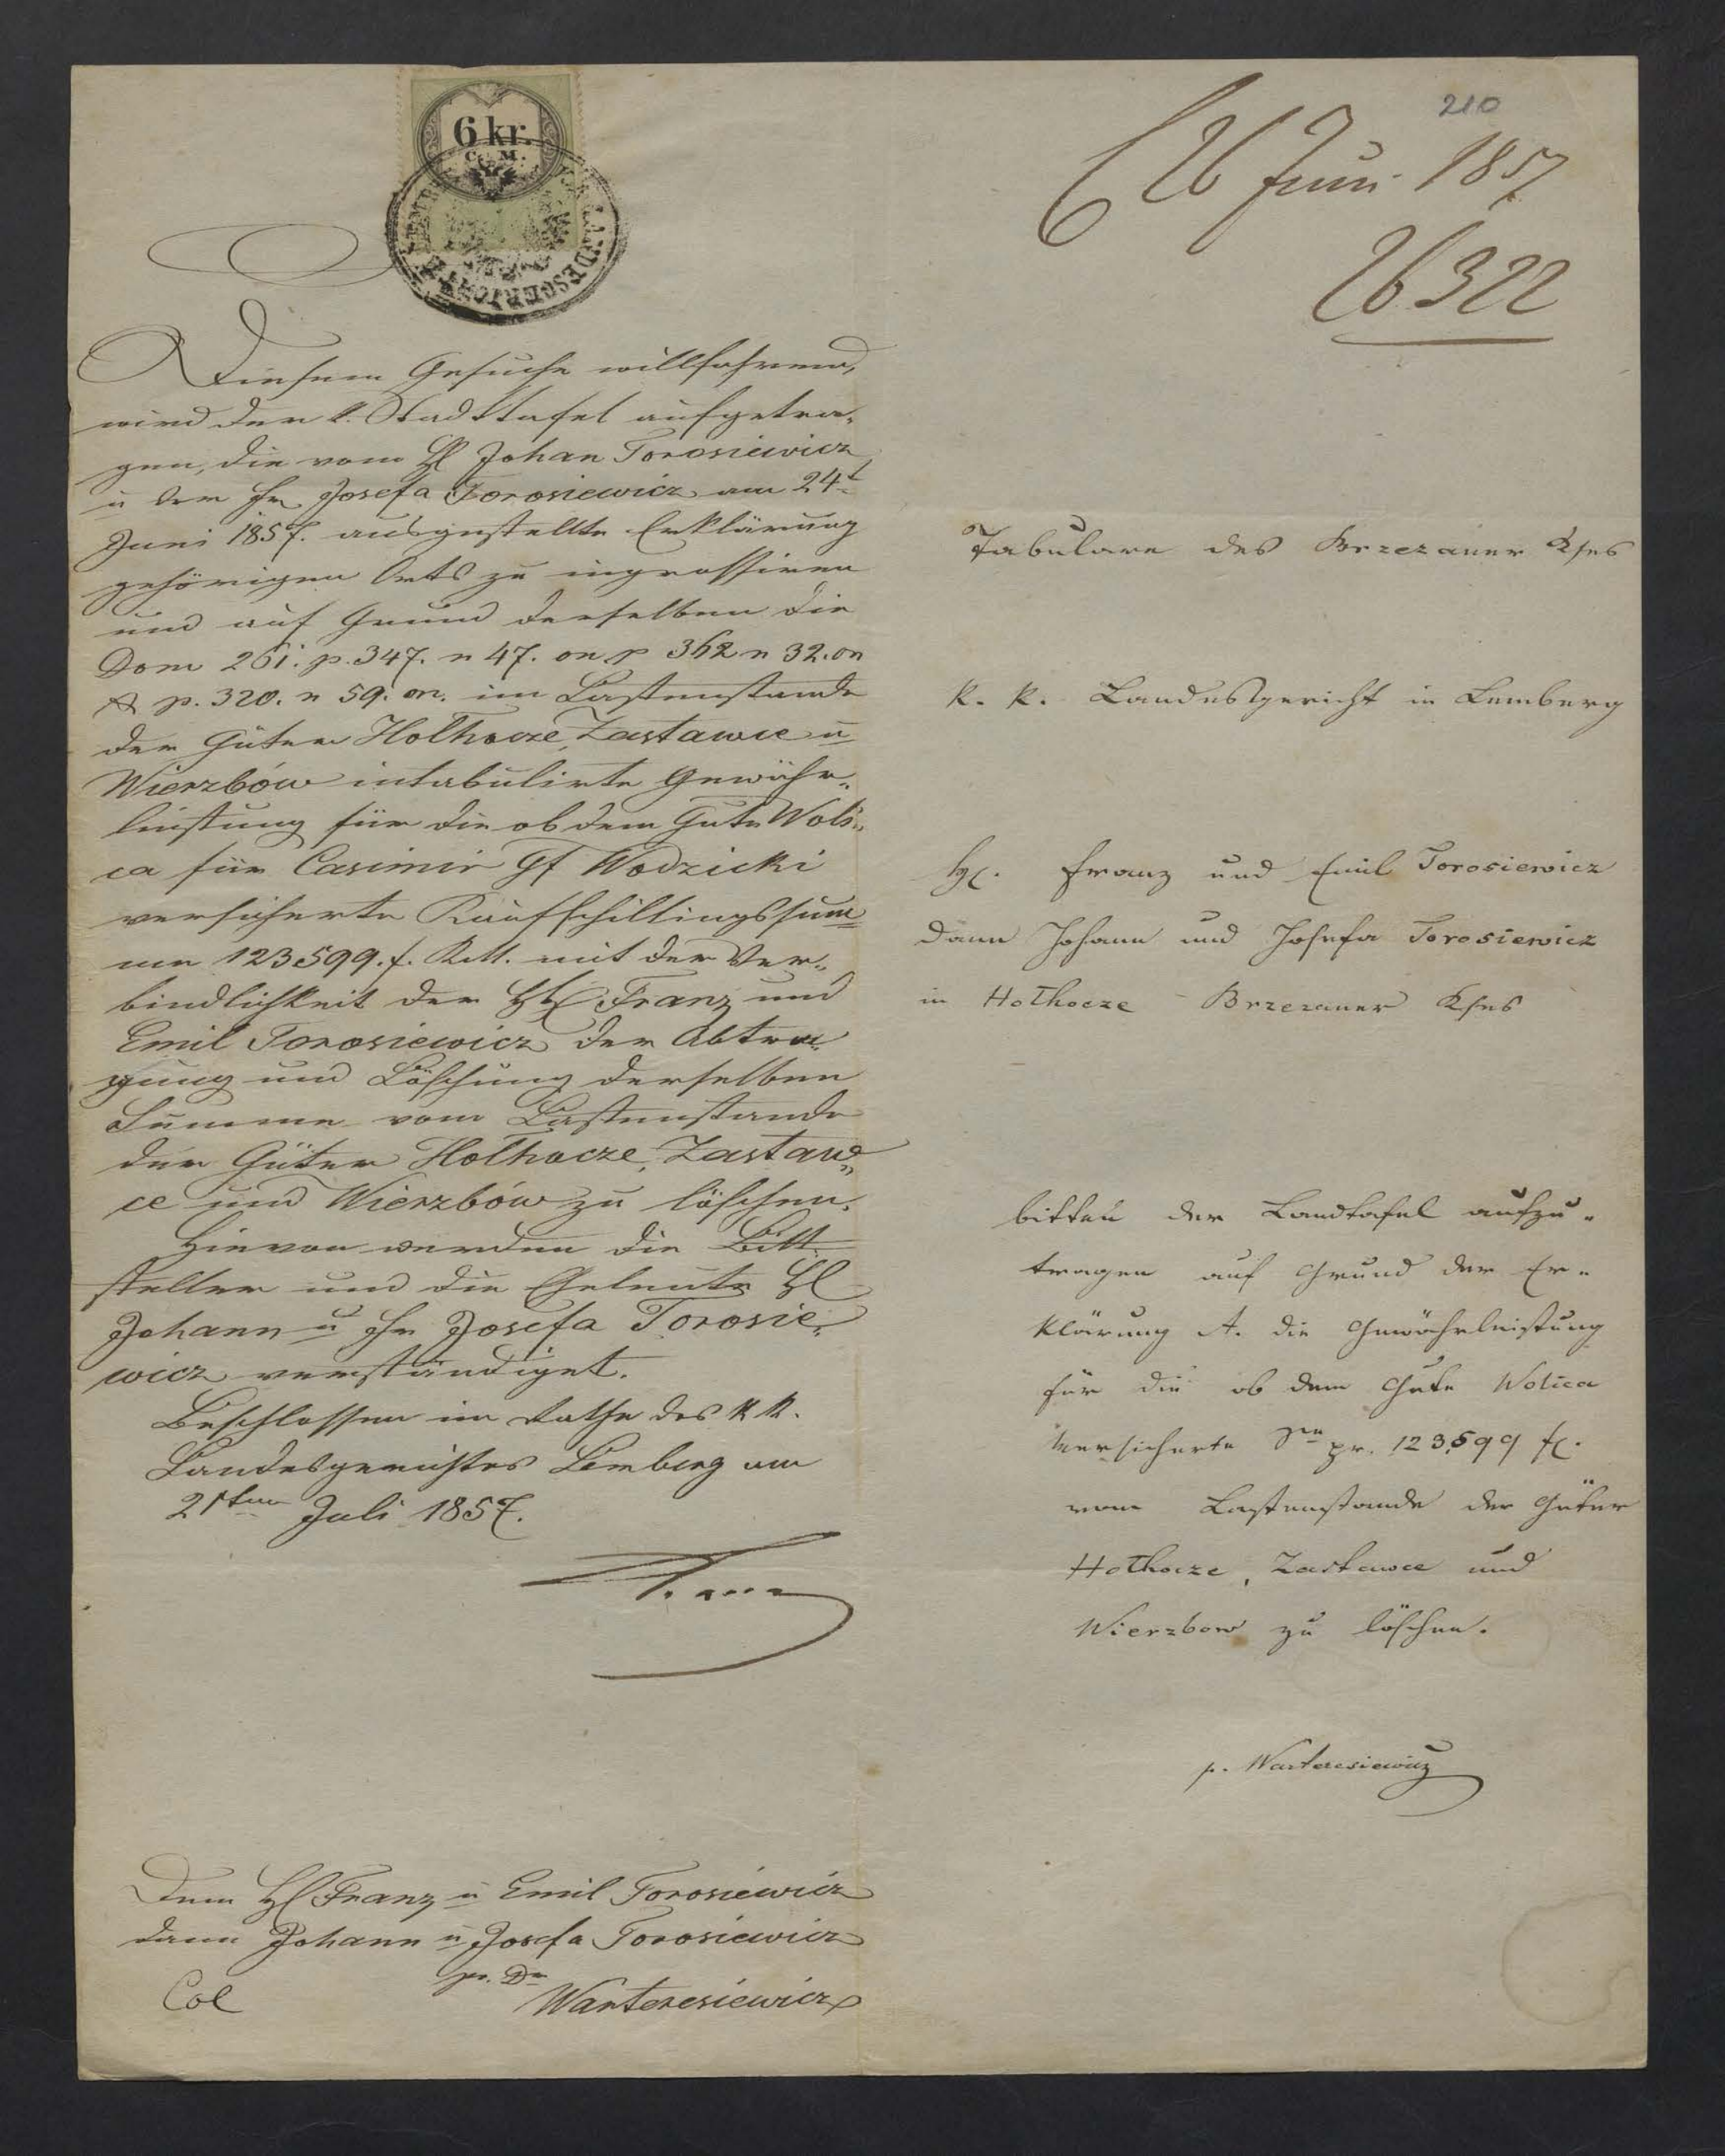 210
6 kr.
C. M.
LANDESGERICHT
26 Juni 1857
26322
Diesem Gesuche willfahrend,
wird der k. Stadttafel aufgetra„
gen, die vom H Johan Torosiewicz
u der Fr Josefa Torosiewicz am 24t
Juni 1857. ausgestellte Erklärung
gehörigen Orts zu ingrossiren
und auf Grund derselben die
Dom 261. p. 347. n 47. on p 362 n 32. on
& p. 320. n 59. on. im Lastenstande
der Güter Holhocze, Zastawce u
Wierzbów intabulirte Gewähr„
leistung für die ob dem Gute Woli„
ca für Casimir Gf Wodzicki
versicherte Kaufschillingssum
me 123599. f. mit der Ver„
bindlichkeit der HH Franz und
Emil Torosiewicz der Abtra„
gung und Löschung derselben
Summe vom Lastenstande
der Güter Holhocze, Zastaw„
ce und Wierzbów zu löschen.
Hievon werden die Bitt
steller und die Eheleute H
Johann u Fr Josefa Torosie„
wicz verständiget.
Beschlossen im Rathe des k k.
Landesgerichtes Lemberg am
21ten Juli 1857.
Dem H Franz u Emil Torosiewicz
dann Johann u Josefa Torosiewicz
pr. Dr
Col Warteresiewicz
Tabulare des Brzezaner Kses
k. k. Landesgericht in Lemberg
H. Franz und Emil Torosiewicz
dann Johann und Josefa Torosiewicz
in Holhocze Brzezaner Kses
bitten der Landtafel aufzu„
tragen auf Grund der Er„
klärung A. die Gewährleistung
für die ob dem Gute Wolica
versicherte Se pr. 123,599 f.
vom Lastenstande der Güter
Holhocze, Zastawce und
Wierzbow zu löschen.
p. Warteresiewicz